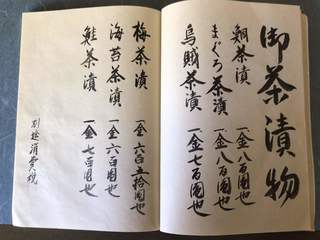 御茶漬物
鯛茶漬 一金八百圓也
まぐろ茶漬 一金八百圓也
烏賊茶漬 一金七百圓也
梅茶漬 一金六百五拾圓也
海苔茶漬 一金六百圓也
鮭茶漬 一金七百圓也
別途消費税